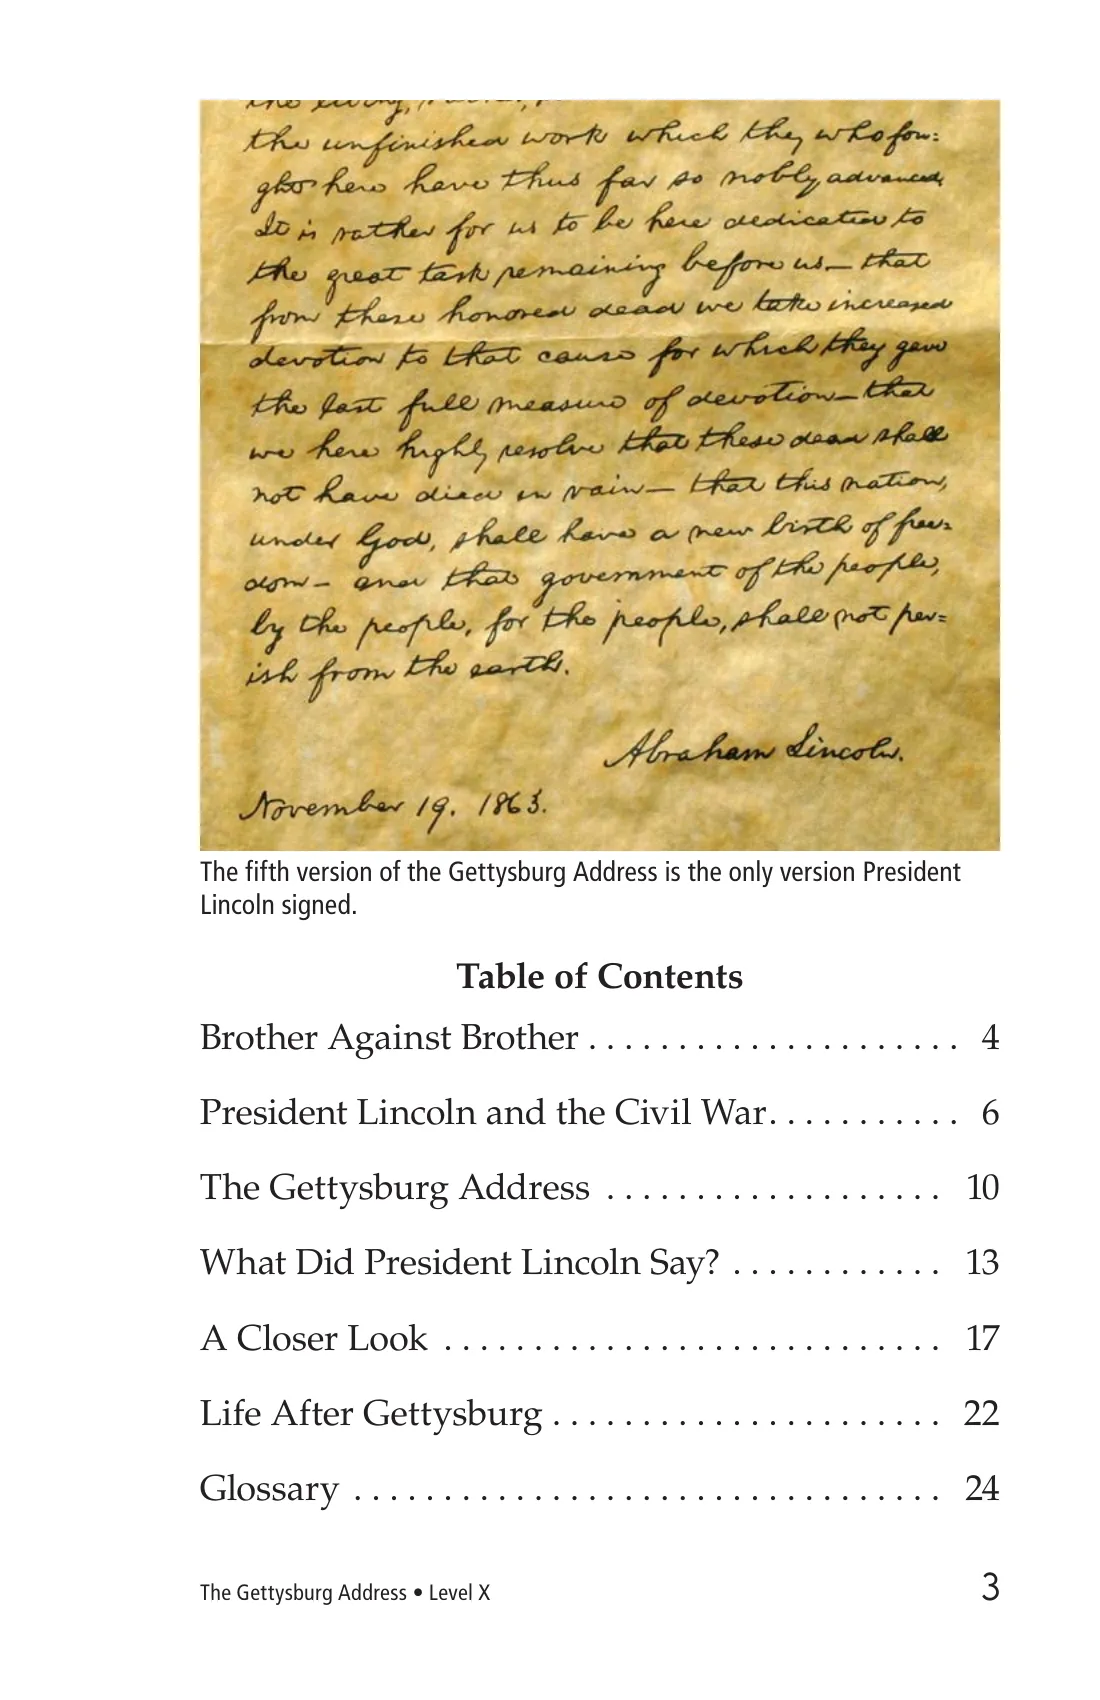 the living, rather,
the unfinished work which they who fou=
ght here have thus far so nobly advanced.
It is rather for us to be here dedicated to
the great task remaining before us— that
from these honored dead we take increased
devotion to that cause for which they gave
the last full measure of devotion— that
we here highly resolve that these dead shall
not have died in vain— that this nation,
under God, shall have a new birth of free=
dom— and that government of the people,
by the people, for the people, shall not per=
ish from the earth.
Abraham Lincoln.
November 19. 1863.
The fifth version of the Gettysburg Address is the only version President
Lincoln signed.
Table of Contents
Brother Against Brother . . . . . . . . . . . . . . . . . . . . . 4
President Lincoln and the Civil War. . . . . . . . . . . 6
The Gettysburg Address . . . . . . . . . . . . . . . . . . . 10
What Did President Lincoln Say? . . . . . . . . . . . . 13
A Closer Look . . . . . . . . . . . . . . . . . . . . . . . . . . . . 17
Life After Gettysburg . . . . . . . . . . . . . . . . . . . . . . 22
Glossary . . . . . . . . . . . . . . . . . . . . . . . . . . . . . . . . . 24
The Gettysburg Address • Level X 3